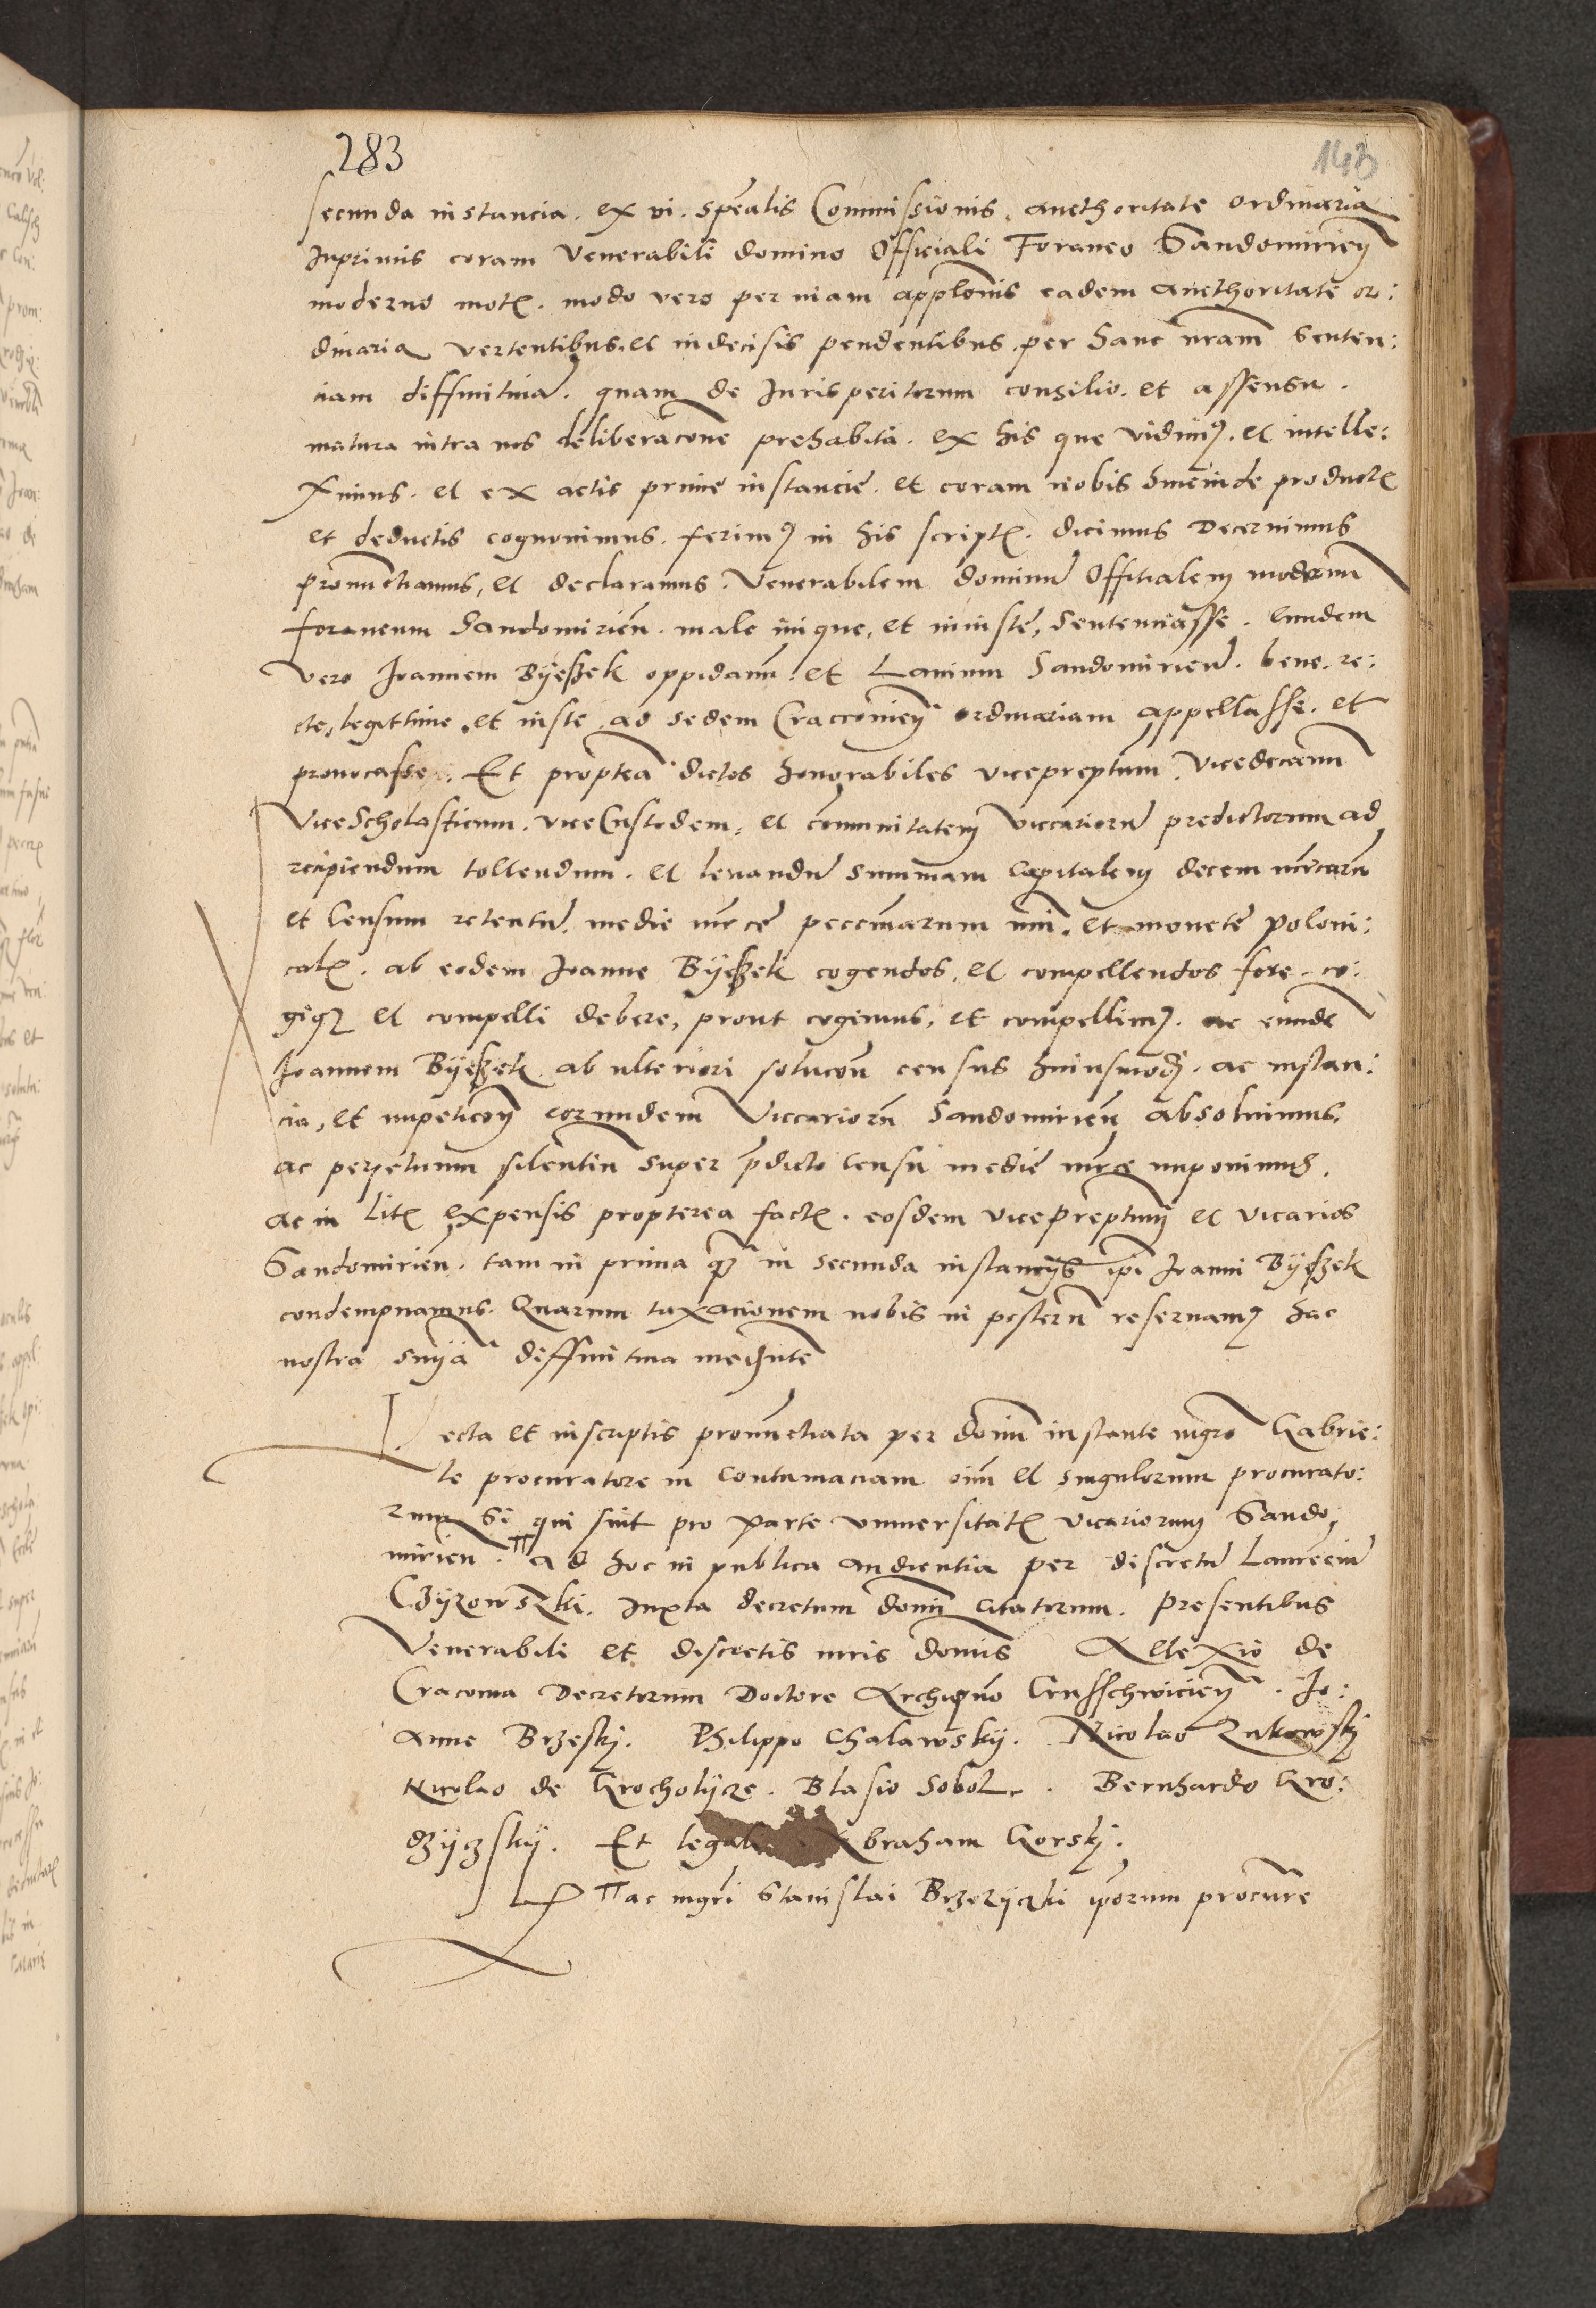 283
143
secunda instancia. ex vi. spealis Commissionis. aucthoritate ordinaria
Inprimis coram Venerabili domino Officiali Foraneo Sandomirien
moderno mot. modo vero per viam applonis eadem aucthoritate or:
dinaria vertentibus et indecisis pendentibus per hanc nram Senten:
ciam diffinitiua. quam de Jurisperitorum consilio. et assensu.
matura intra nos deliberacone prehabita. ex his que vidim9. et intelle:
ximus. et ex actis prime instancie. et coram nobis hincinde product
et deductis cognouimus. ferim9 in his script. dicimus Decernimus
pronunctiamus, et declaramus. Venerabilem dominu Offitialem modernu
foraneum Sandomirien. male inique, et iniuste, Sentenciasse. Eundem
vero Joannem Byeszek oppidanu et Lanium Sandomirien. bene. re:
cte, legittime, et iuste ad Sedem Cracouien ordinariam appellasse. et
prouocasse. Et proptea dictos honorabiles viceprepitum, Vicedecanu
ViceScholasticum. viceCustodem, et comunitatem viccarioru predictorum ad
recipiendum tollendum. et leuandu Summam capitalem decem mrcaru
et Censum retentu. medie mrce peccuniarum nui. et monete poloni:
cal. ab eodem Joanne Byeszek cogendos, et compellendos fore. co:
giq3 et compelli debere, prout cogimus, et compellim9. ac eunde
Joannem Byeszek ab ulteriori solucon census huiusmodj. ac instan:
cia, et impeticon eorundem Viccarioru Sandomirien absoluimus.
ac perpetuum silentiu super pdicto Censu medie mrce imponimus.
ac in Lit expensis propterea fact. eosdem viceprepitum et vicarios
Sandomirien. tam in prima q3 in secunda instancijs ipi Joanni Byeszek
condempnamus. Quarum taxacionem nobis in posteru reseruam9 hac
nostra snia diffinitiua mediante
Lecta et inscriptis pronunctiata per domin instante mgro Gabrie:
le procuratore in contumaciam oim et singulorum procurato:
rum Si qui sint pro parte vniuersitat vicariorum Sando,
mirien. Ad hoc in publica audientia per discretu Laurenciu
Czyzowszki. Juxta decretum domi citatorum. Presentibus
Venerabili et discretis viris domis Allexio de
Cracouia Decretorum Doctore Archipno Crusschwicien. Jo:
Anne Brzeskj. Philippo Chalawsky. Nicolao Zukowskj
Nicolao de Krocholycze. Blasio Sobol. Bernhardo Gro:
dzyczsky. Et Abraham Gorskj.
ac mgri Stanislai Brzezyczki iporum procurre